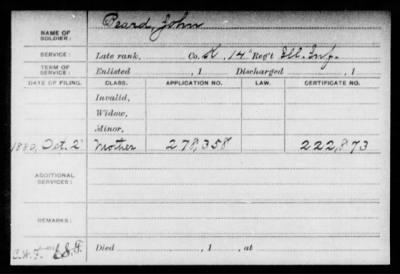 NAME OF SOLDIER: Peard, John
SERVICE: Late rank, Co. K, 14" Reg't Ill. Inf.
TERM OF SERVICE: Enlisted , 1 Discharged , 1
DATE OF FILING. CLASS. APPLICATION NO. LAW. CERTIFICATE NO.
Invalid,
Widow,
Minor,
1880, Oct. 2 Mother 278,358 222,873
ADDITIONAL SERVICES:
REMARKS:
Died , 1 , at